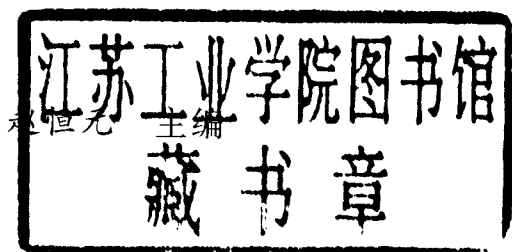 江苏工业学院图书馆
赵恒元 主编
藏书章